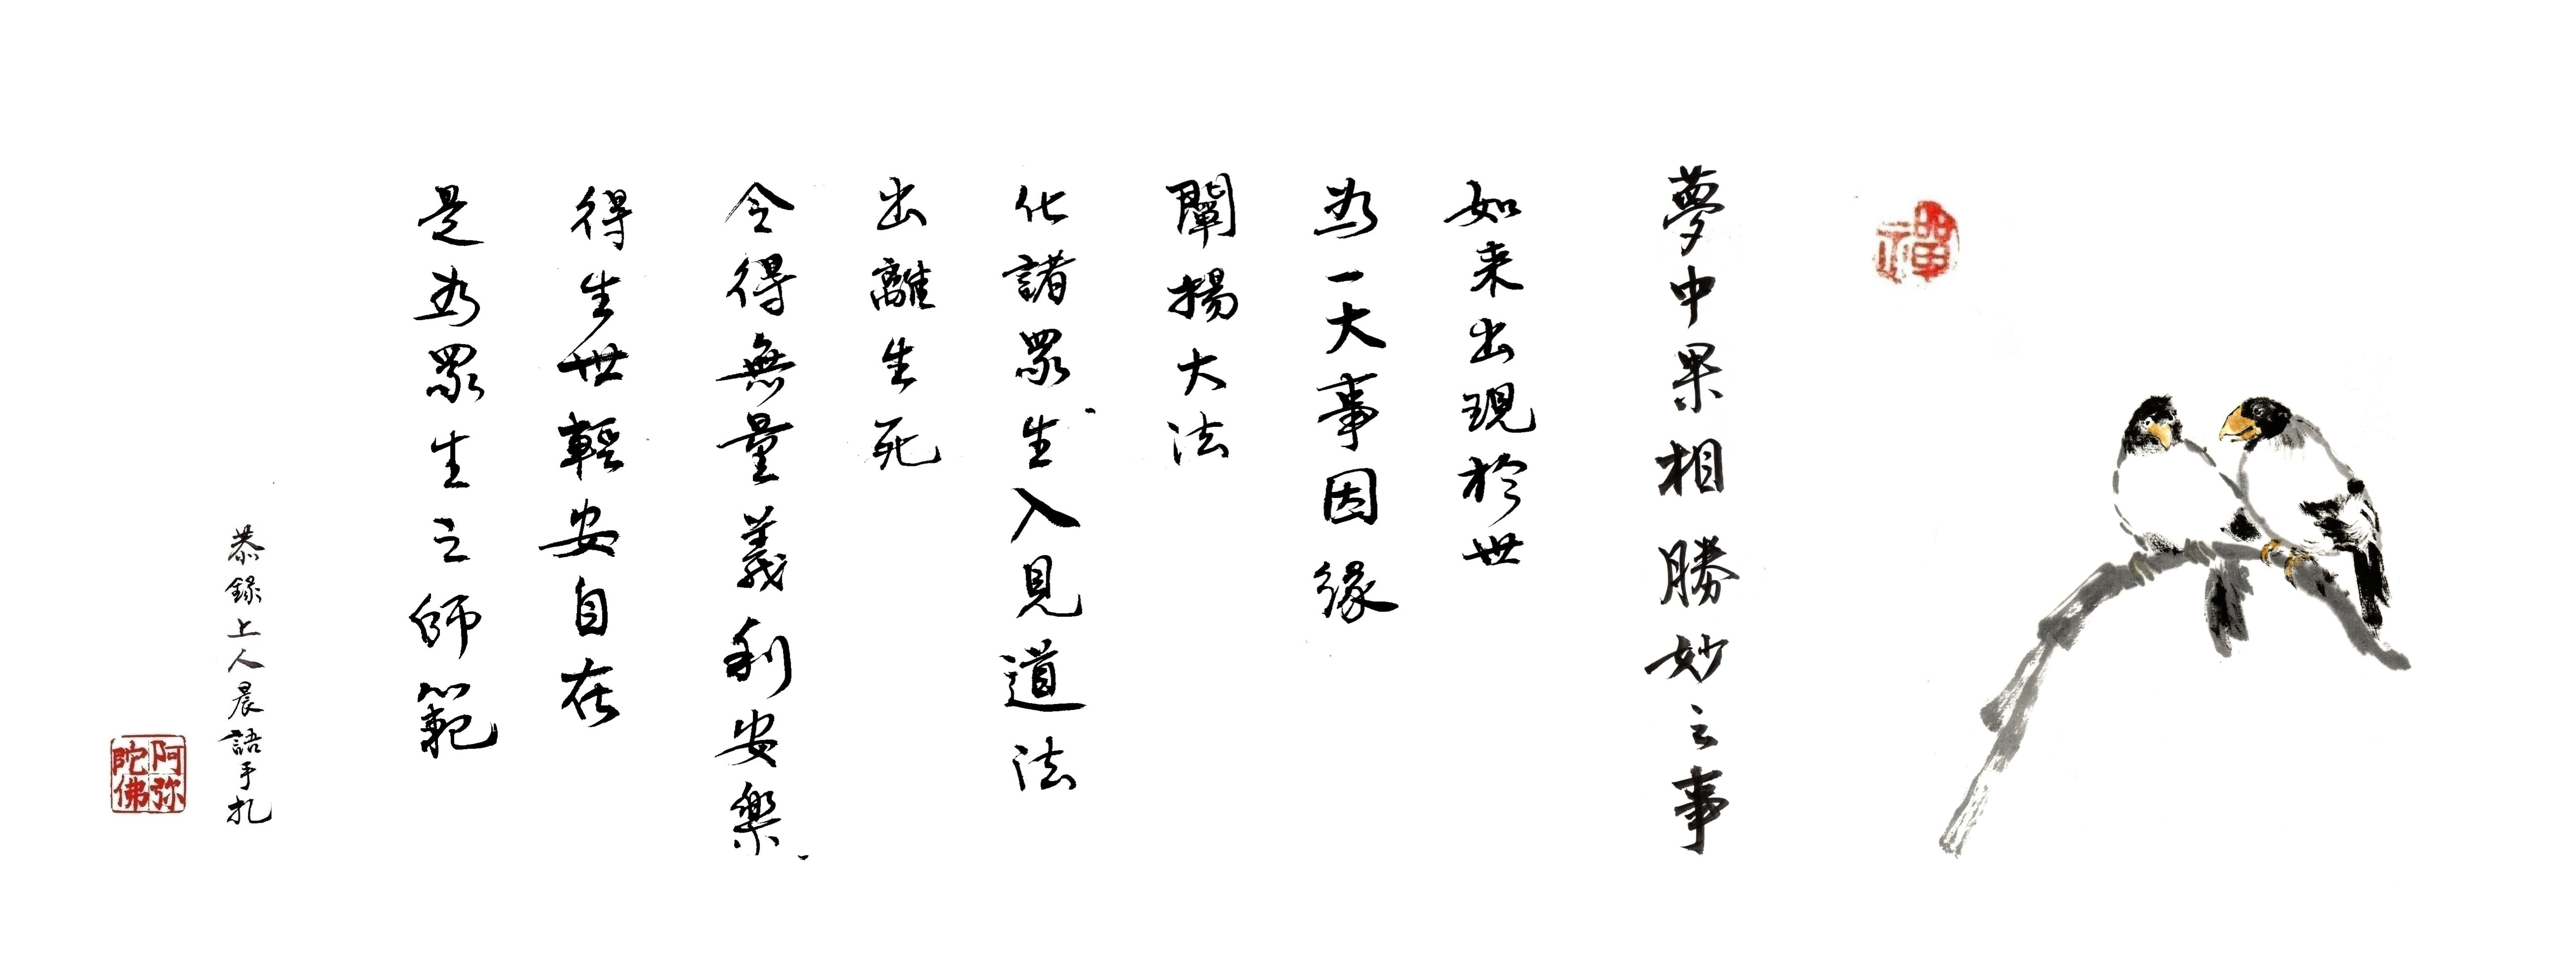 禪
夢中果相勝妙之事
如来出現於世
為一大事因緣
闡揚大法
化諸眾生入見道法
出離生死
令得無量義利安樂
得生世輕安自在
是為眾生之師範
恭錄上人晨語手扎
阿弥陀佛